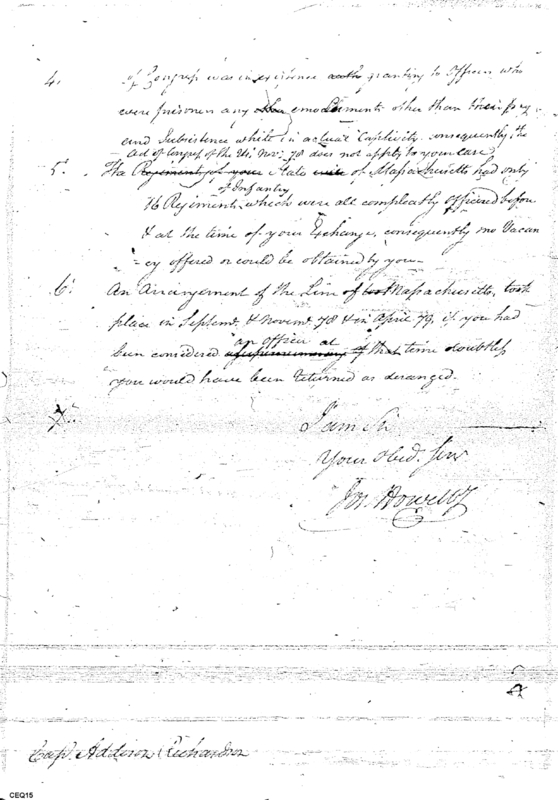 4. of Congress was in existence granting to Officers who
were prisoners any emoluments other than their pay
and Subsistence while in actual Captivity, consequently, the
Act of Congress of the 24 Nov. 78 does not apply to your case.
5. The Regiments of your State were of Massachusetts had only
of Infantry
16 Regiments, which were all compleatly Officered before
& at the time of your Exchange, consequently no Vacan
=cy offered or could be obtained by you—
6. An Arrangement of the Line of Massachusetts, took
place in Septemr. & Novemr. 78 & in April 79, if you had
an officer at
been considered a supernumerary of that time doubtless
you would have been returned as deranged.
7.
I am Sir
Your Obed. Serv
Jos. Howell Jr
Capt. Addison Richardson
CEQ15